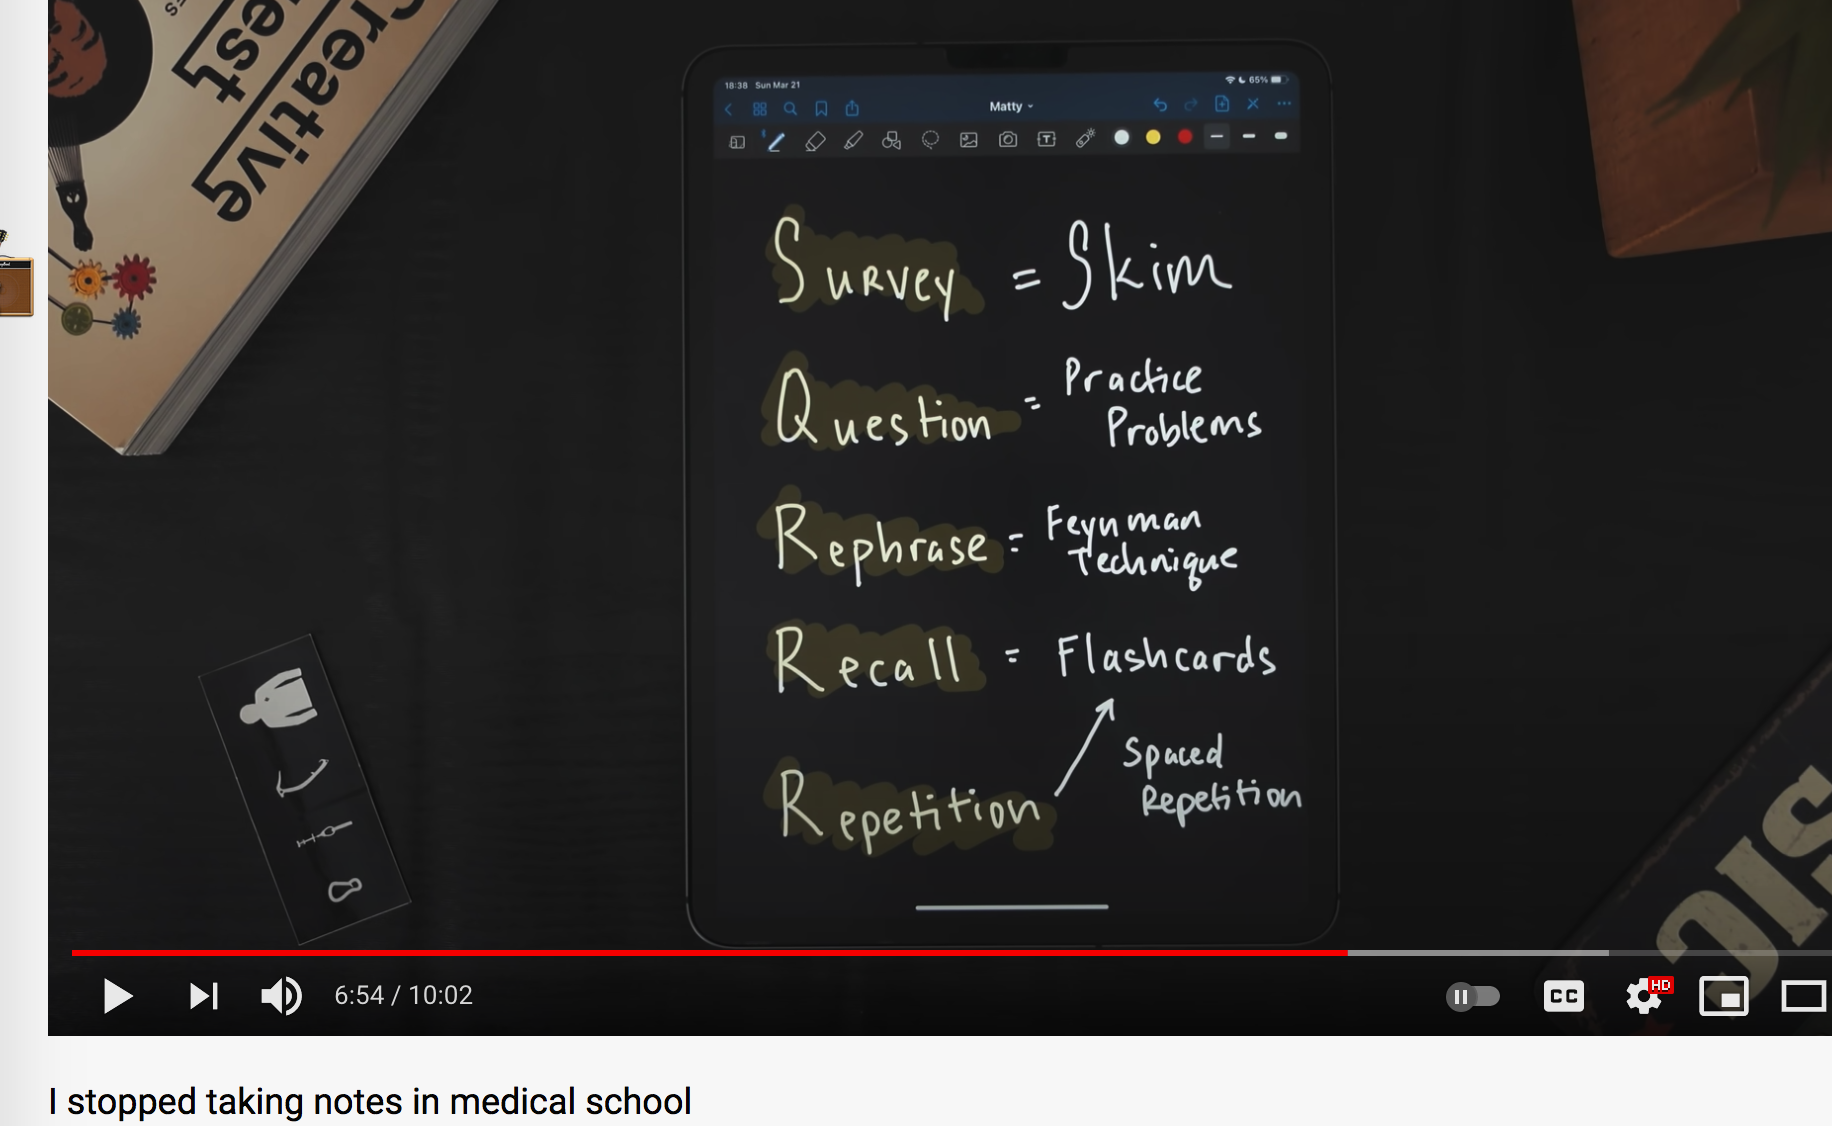 Creative
est
18:38 Sun Mar 21
65%
Matty
T
Survey = Skim
Question = Practice
Problems
Rephrase = Feynman
Technique
Recall = Flashcards
Spaced
Repetition
Repetition
SIC
6:54 / 10:02
CC
HD
I stopped taking notes in medical school